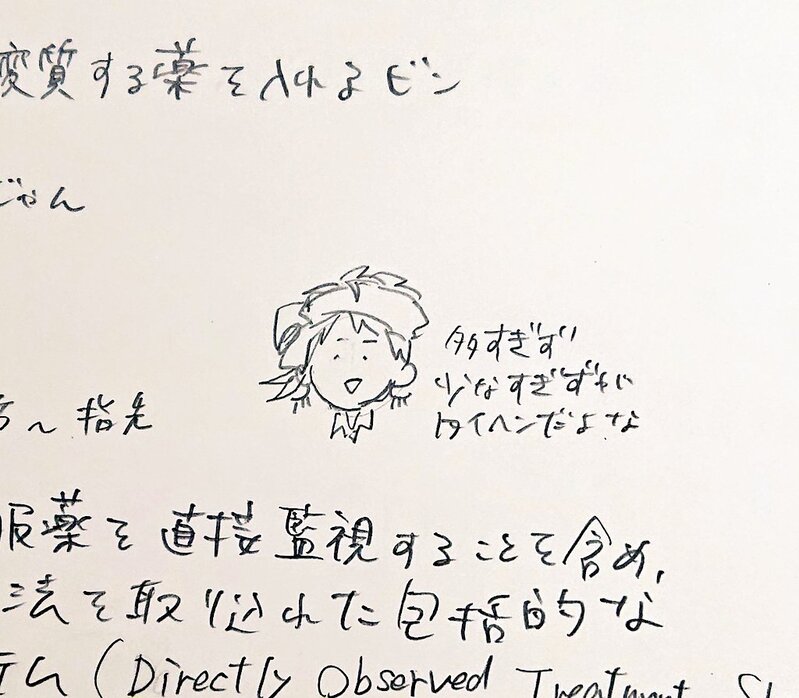 変質する薬を入れるビン
じゃん
多すぎず
少なすぎずが
タイヘンだよな
〜指先
服薬を直接監視することを含め,
法を取り込れた包括的な
テム(Directly Observed Treatment, S